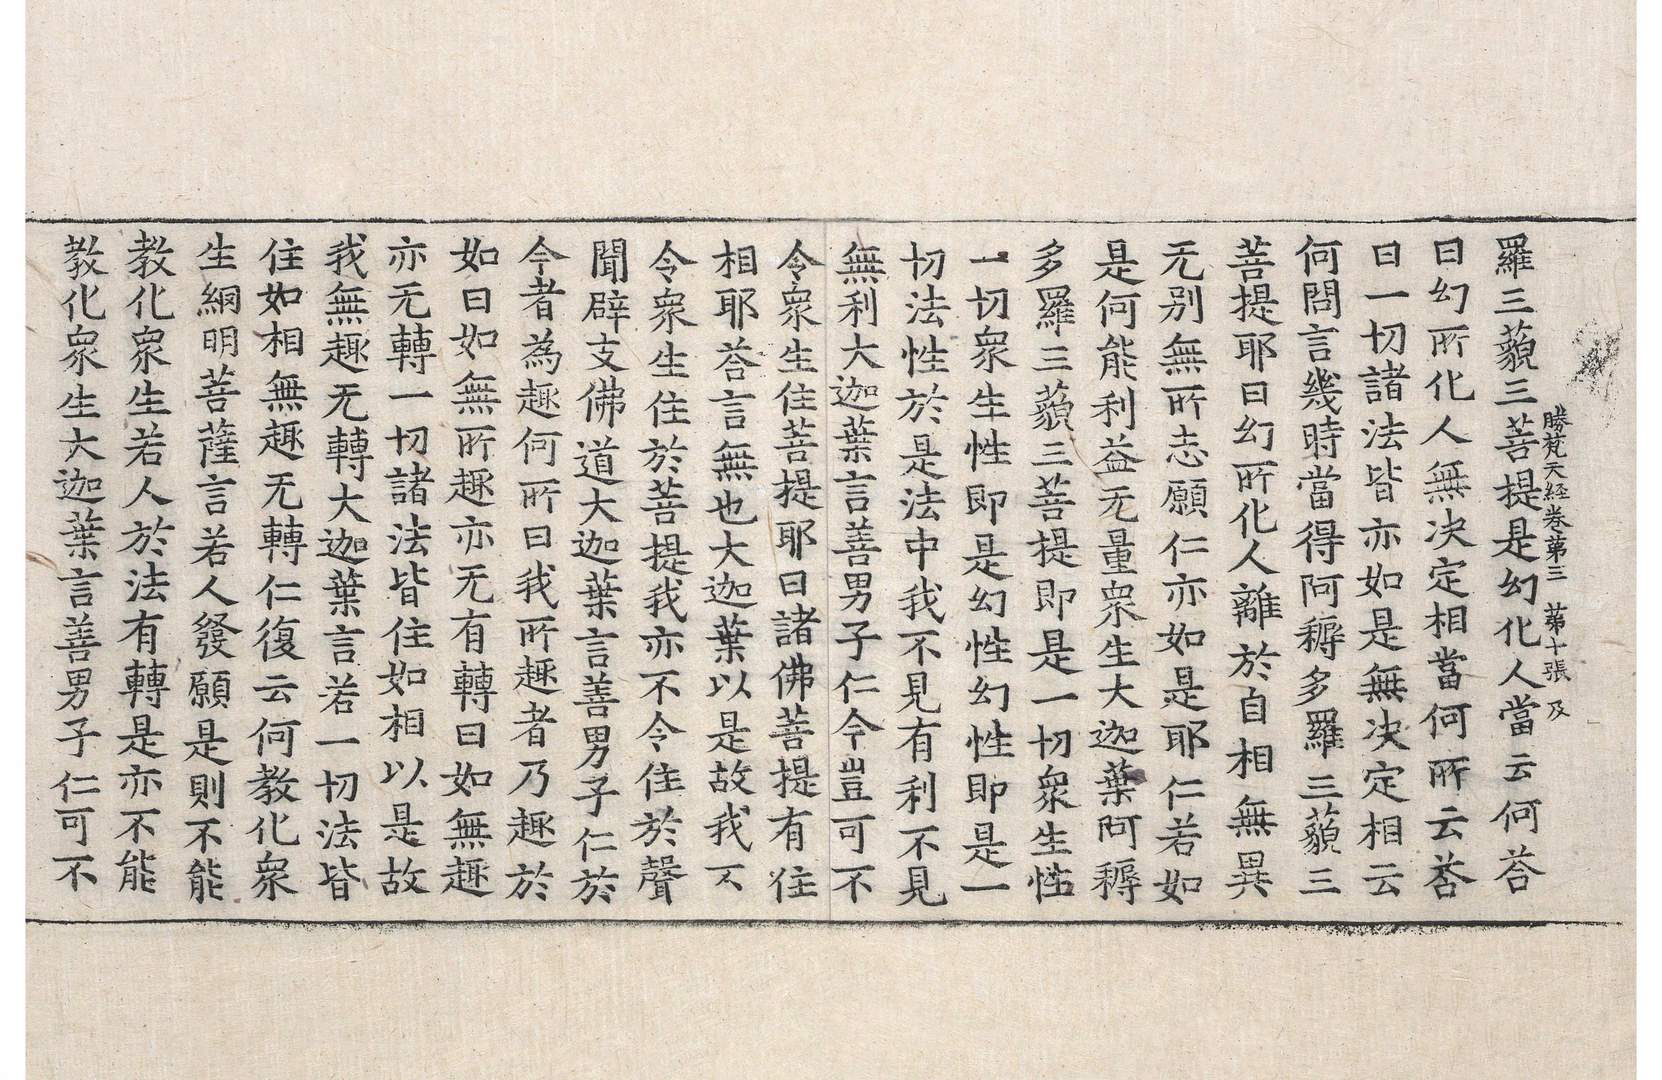 勝梵天経卷苐三　苐十張　及
羅三藐三菩提是幻化人當云何荅
曰幻所化人無决定相當何所云荅
曰一切諸法皆亦如是無决定相云
何問言幾時當得阿耨多羅三藐三
菩提耶曰幻所化人離於自相無異
无別無所志願仁亦如是耶仁若如
是何能利益无量衆生大迦葉阿耨
多羅三藐三菩提即是一切衆生性
一切衆生性即是幻性幻性即是一
切法性於是法中我不見有利不見
無利大迦葉言善男子仁今豈可不
令衆生住菩提耶曰諸佛菩提有住
相耶荅言無也大迦葉以是故我不
令衆生住於菩提我亦不令住於聲
聞辟支佛道大迦葉言善男子仁於
今者為趣何所曰我所趣者乃趣於
如曰如無所趣亦无有轉曰如無趣
亦无轉一切諸法皆住如相以是故
我無趣无轉大迦葉言若一切法皆
住如相無趣无轉仁復云何教化衆
生網明菩薩言若人發願是則不能
教化衆生若人於法有轉是亦不能
教化衆生大迦葉言善男子仁可不